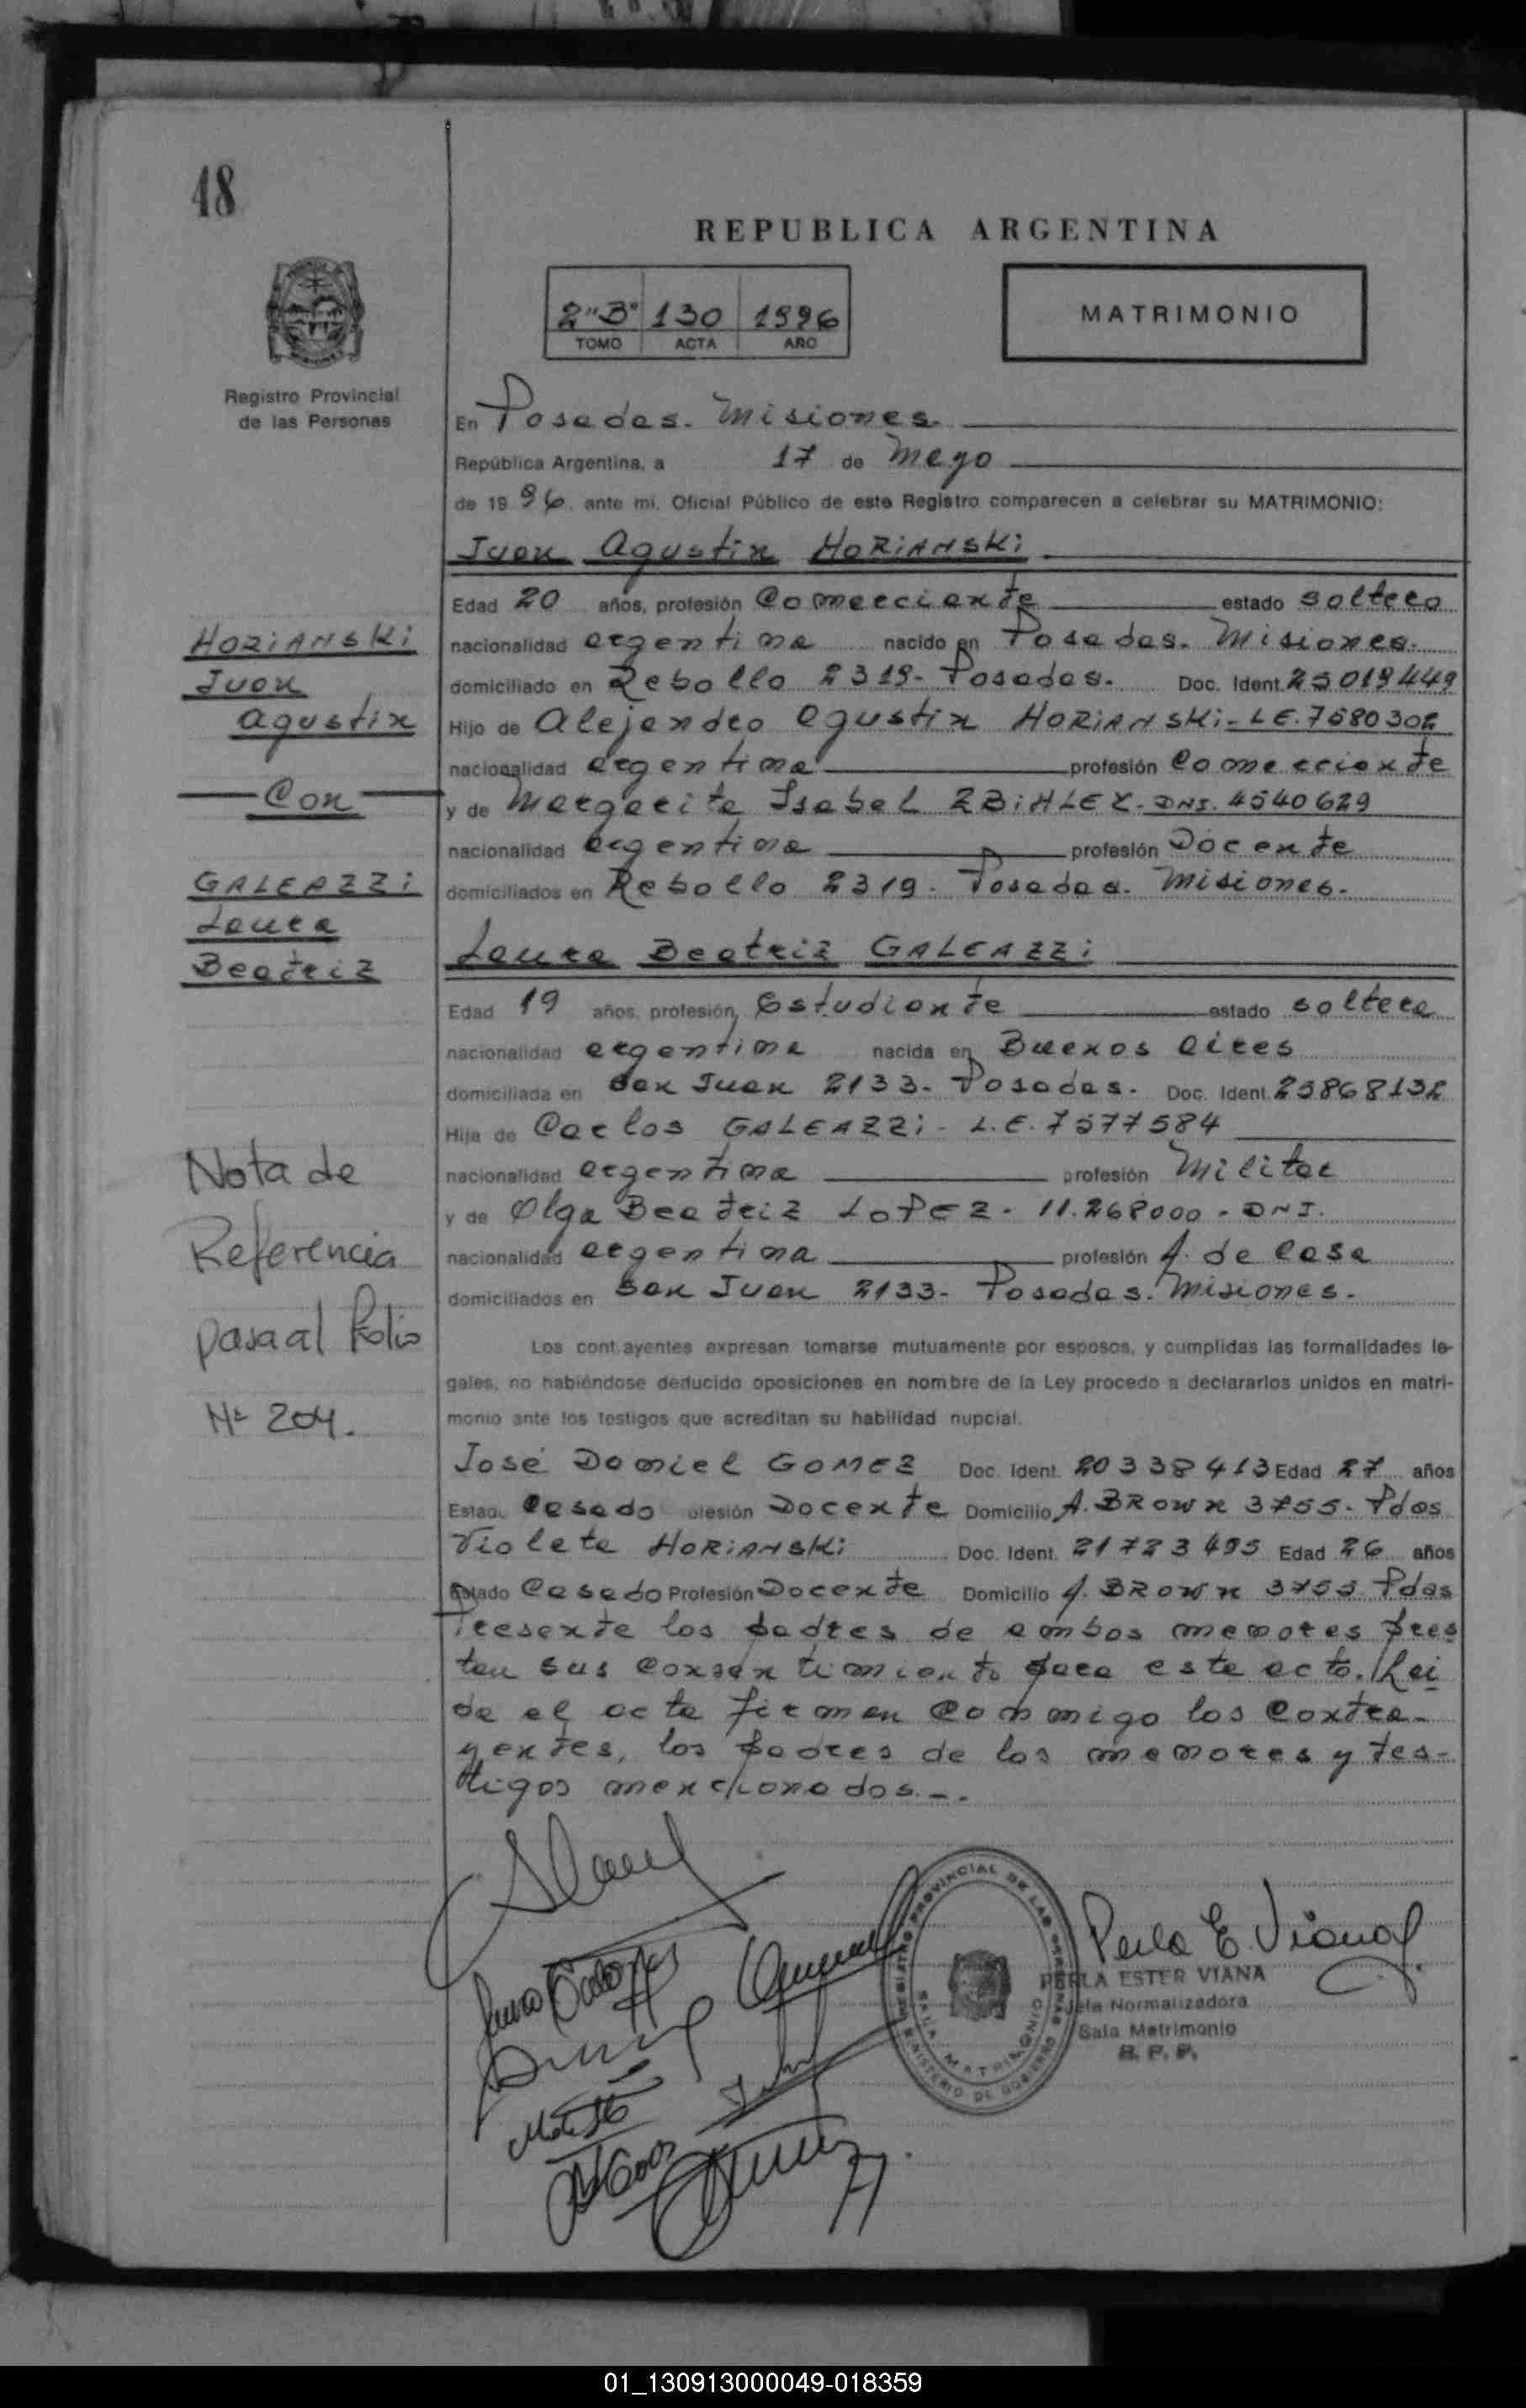 48
REPUBLICA ARGENTINA
2"B" 130 1996
TOMO ACTA AÑO
MATRIMONIO
Registro Provincial
de las Personas
En Posadas. Misiones.
República Argentina, a 17 de Mayo
de 1996, ante mi, Oficial Público de este Registro comparecen a celebrar su MATRIMONIO:
Juan Agustin HORIANSKi
Edad 20 años, profesión Comerciante estado soltero
nacionalidad argentina nacido en Posadas. Misiones.
domiciliado en Rebollo 2319- Posadas. Doc. Ident. 25019449
Hijo de Alejandro Agustin HORIANSKi- LE. 7580302
nacionalidad argentina profesión Comerciante
y de Margarita Isabel ZBiHLEY- DNI. 4540629
nacionalidad argentina profesión Docente
domiciliados en Rebollo 2319. Posadas. Misiones.
HORIANSKi
Juan
Agustin
Con
GALEAZZi
Laura
Beatriz
Laura Beatriz GALEAZZi
Edad 19 años, profesión Estudiante estado soltera
nacionalidad argentina nacida en Buenos Aires
domiciliada en San Juan 2133- Posadas. Doc. Ident. 25868132
Hija de Carlos GALEAZZi- L.E. 7577584
nacionalidad argentina profesión Militar
y de Olga Beatriz LOPEZ- 11.268000- DNI.
nacionalidad argentina profesión A. de Casa
domiciliados en San Juan 2133- Posadas. Misiones.
Nota de
Referencia
pasa al folio
Nº 204.
Los cont ayentes expresan tomarse mutuamente por esposos, y cumplidas las formalidades le-
gales, no habiéndose deducido oposiciones en nombre de la Ley procedo a declararlos unidos en matri-
monio ante los testigos que acreditan su habilidad nupcial.
José Daniel GOMEZ Doc. Ident. 20338413 Edad 27 años
Estado Casado ofesión Docente Domicilio A. BROWN 3755- Pdas
Violeta HORIANSKi Doc. Ident. 21723495 Edad 26 años
Estado Casado Profesión Docente Domicilio A. BROWN 3755 Pdas
Presente los padres de ambos menores pres
tan sus consentimiento para este acto. Lei
da el acta firman conmigo los contra-
yentes, los padres de los menores y tes-
tigos mencionados.-.
Perla E. Viana
PERLA ESTER VIANA
Jefa Normalizadora
Sala Matrimonio
R. P. P.
REGISTRO PROVINCIAL DE LAS PERSONAS
SALA MATRIMONIO
MINISTERIO DE GOBIERNO
01_130913000049-018359